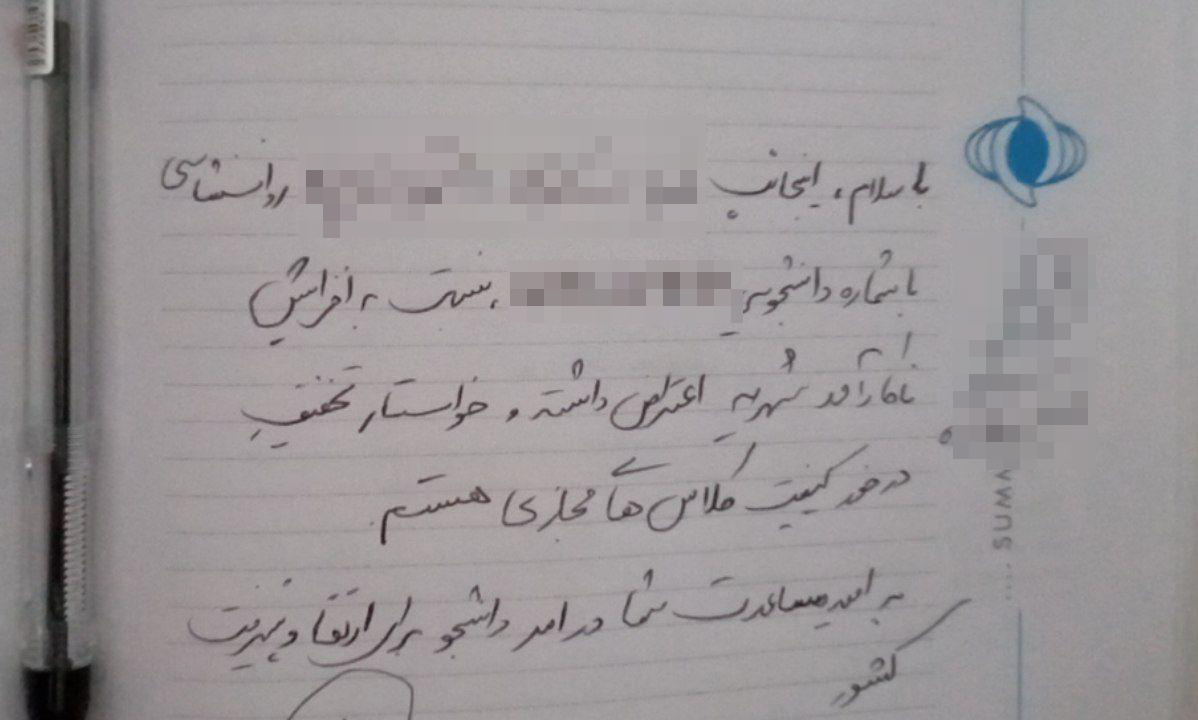 با سلام، اینجانب روانشناسی
با شماره دانشجویی نسبت به افزایش
ناکارآمد شهریه اعتراض داشته و خواستار تخفیف
درخور کیفیت کلاس های مجازی هستم.
به امید مساعدت شما در امر دانشجو برای ارتقا و تربیت
کشور
SUMA